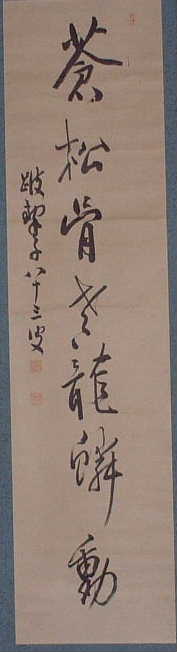 蒼松骨老龍鱗動
跛挈子八十三叟